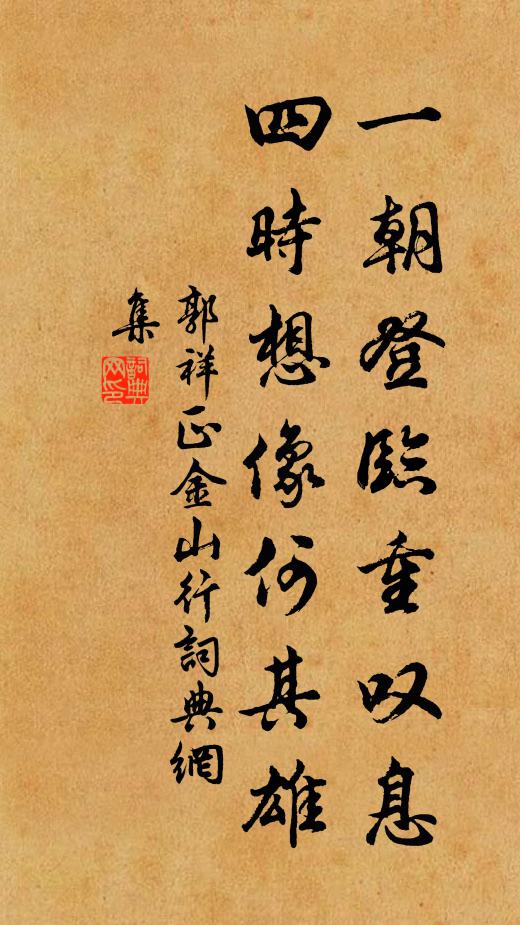 一朝登臨重叹息
四時想像何其雄
郭祥正金山行詞典網
集
詞典网印